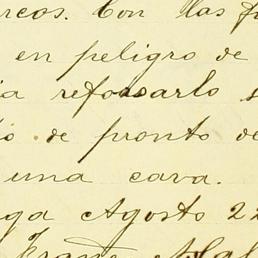 rcos. Con las
en peligro de
a reforsarlo s
o de pronto de
una cava.
ga Agosto 22